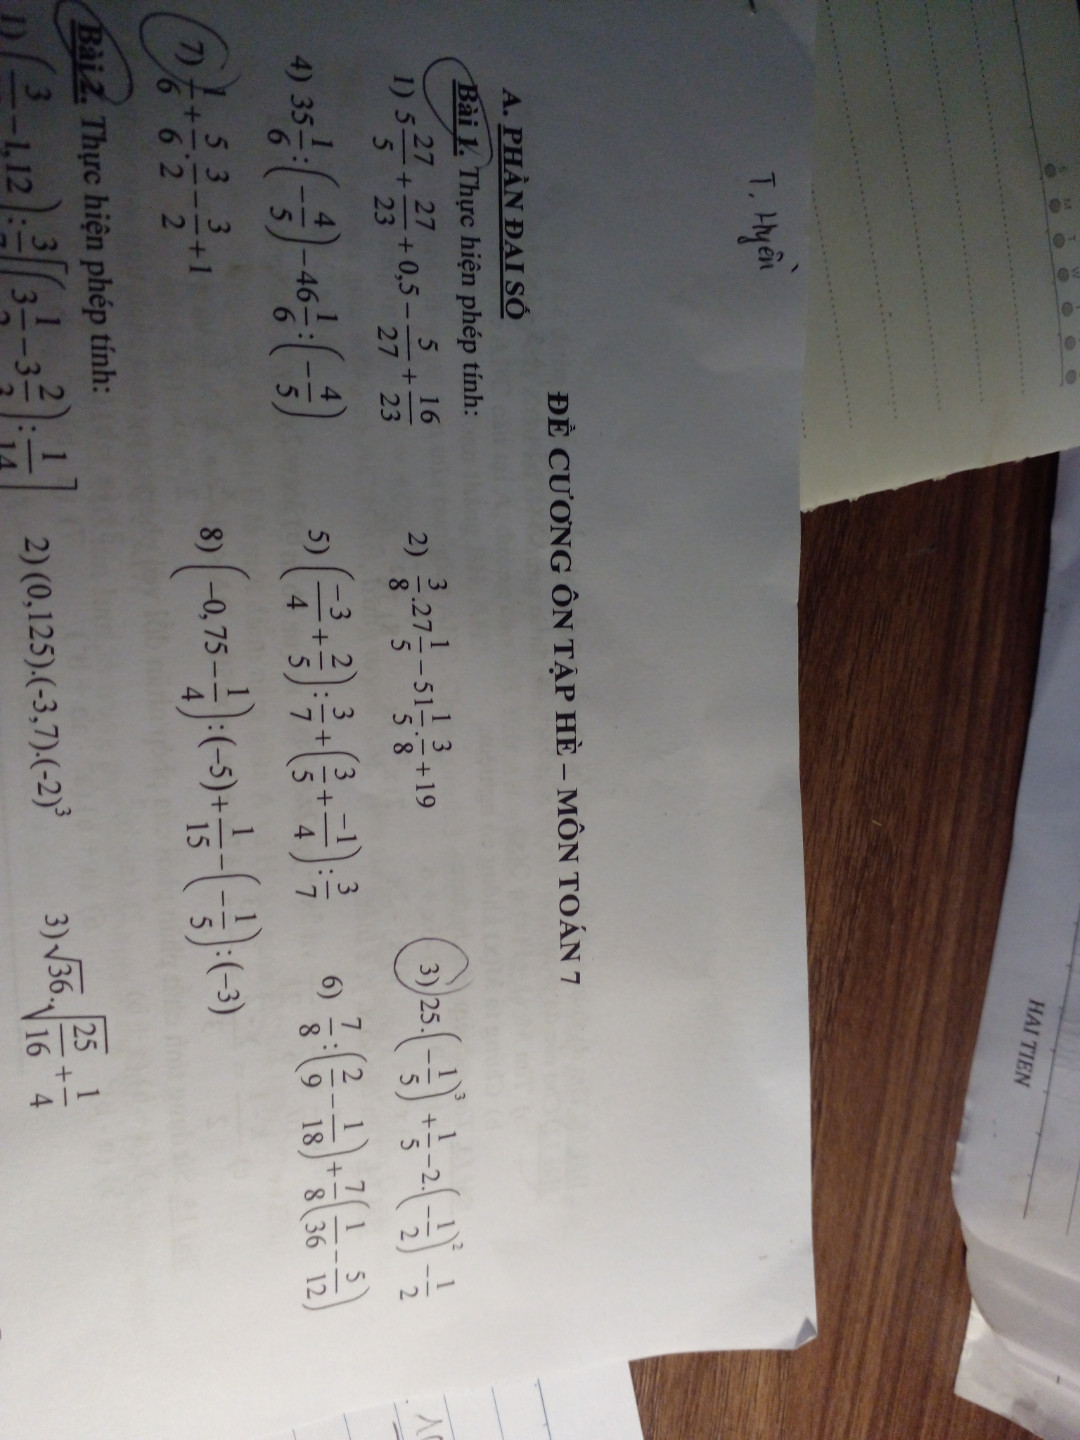 T. Hyền
ĐỀ CƯƠNG ÔN TẬP HÈ – MÔN TOÁN 7
A. PHẦN ĐẠI SỐ
Bài 1. Thực hiện phép tính:
1) 5 27/5 + 27/23 + 0,5 − 5/27 + 16/23 2) 3/8 . 27 1/5 − 51 1/5 . 3/8 + 19 3) 25.(−1/5)³ + 1/5 − 2.(−1/2)² − 1/2
4) 35 1/6 : (−4/5) − 46 1/6 : (−4/5) 5) (−3/4 + 2/5) : 3/7 + (3/5 + −1/4) : 3/7 6) 7/8 : (2/9 − 1/18) + 7/8 (1/36 − 5/12)
7) 1/6 + 5/6 . 3/2 − 3/2 + 1 8) (−0,75 − 1/4) : (−5) + 1/15 − (−1/5) : (−3)
Bài 2. Thực hiện phép tính:
2) (0,125).(-3,7).(-2)³ 3) √36.√(25/16) + 1/4
HAI TIEN